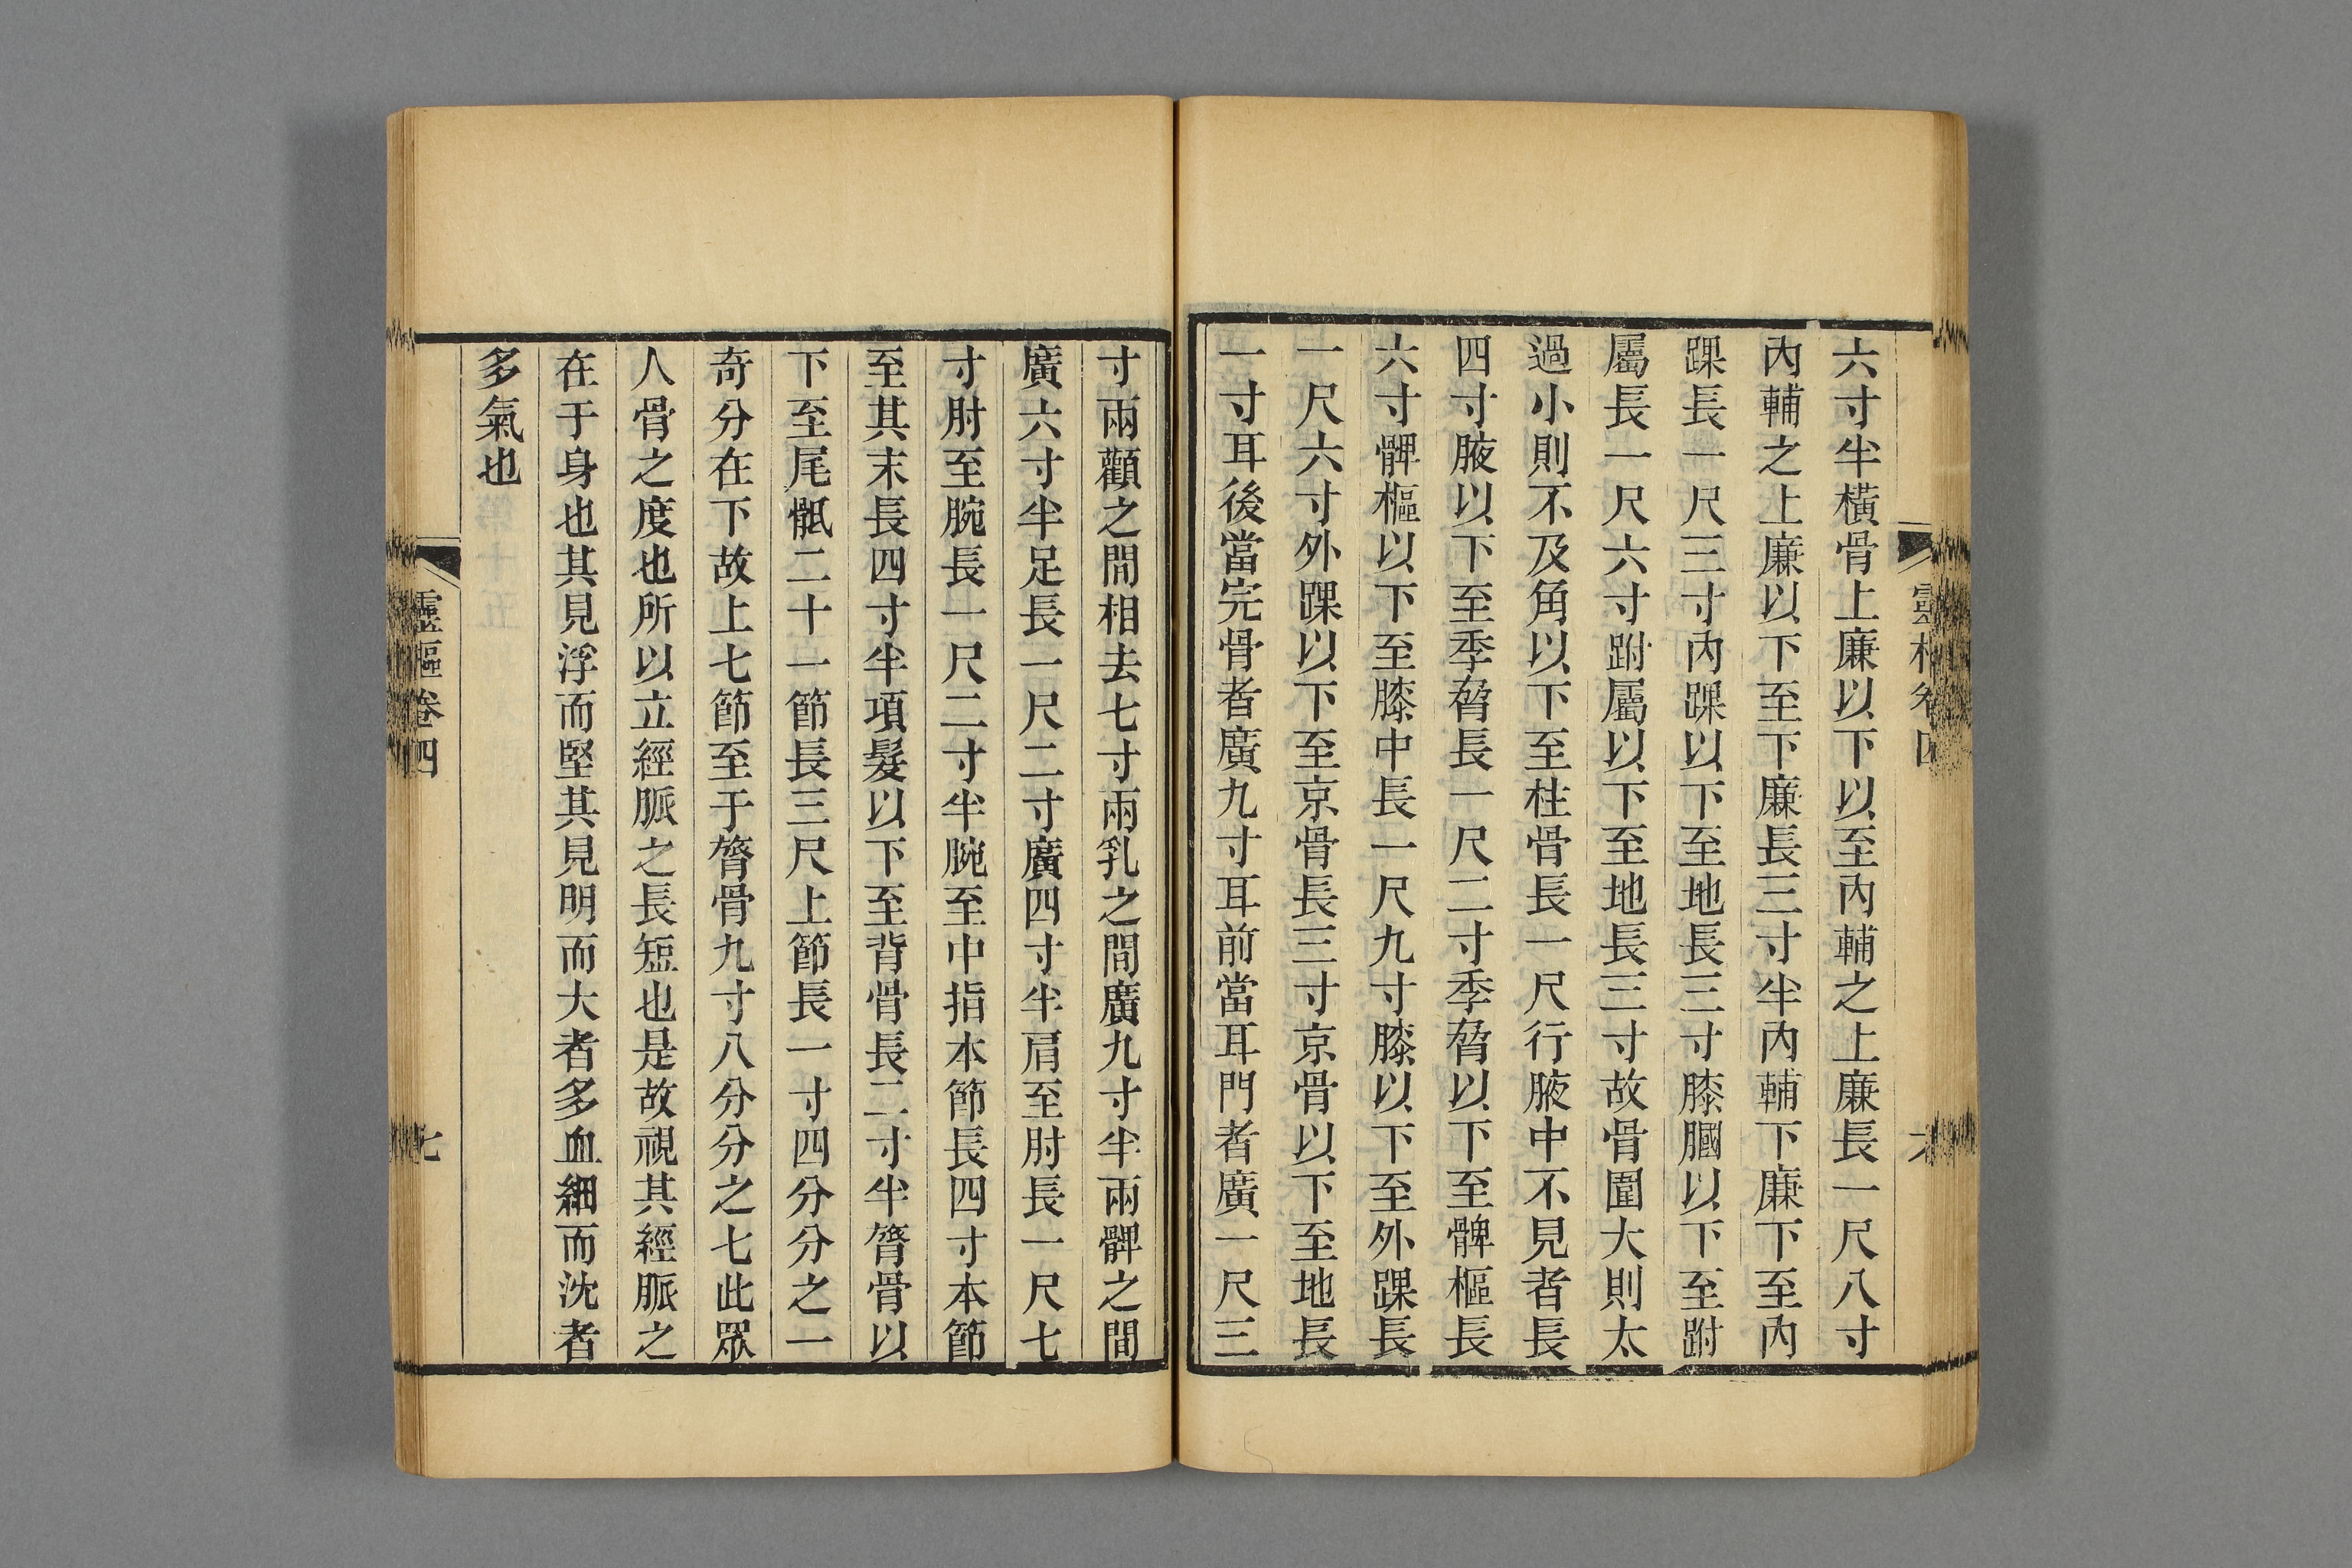 六寸半橫骨上廉以下以至內輔之上廉長一尺八寸
內輔之上廉以下至下廉長三寸半內輔下廉下至內
踝長一尺三寸內踝以下至地長三寸膝膕以下至跗
屬長一尺六寸跗屬以下至地長三寸故骨圍大則太
過小則不及角以下至柱骨長一尺行腋中不見者長
四寸腋以下至季脅長一尺二寸季脅以下至髀樞長
六寸髀樞以下至膝中長一尺九寸膝以下至外踝長
一尺六寸外踝以下至京骨長三寸京骨以下至地長
一寸耳後當完骨者廣九寸耳前當耳門者廣一尺三
寸兩顴之間相去七寸兩乳之間廣九寸半兩髀之間
廣六寸半足長一尺二寸廣四寸半肩至肘長一尺七
寸肘至腕長一尺二寸半腕至中指本節長四寸本節
至其末長四寸半項髮以下至背骨長二寸半膂骨以
下至尾骶二十一節長三尺上節長一寸四分分之一
奇分在下故上七節至于膂骨九寸八分分之七此眾
人骨之度也所以立經脈之長短也是故視其經脈之
在于身也其見浮而堅其見明而大者多血細而沈者
多氣也
靈樞卷四
七